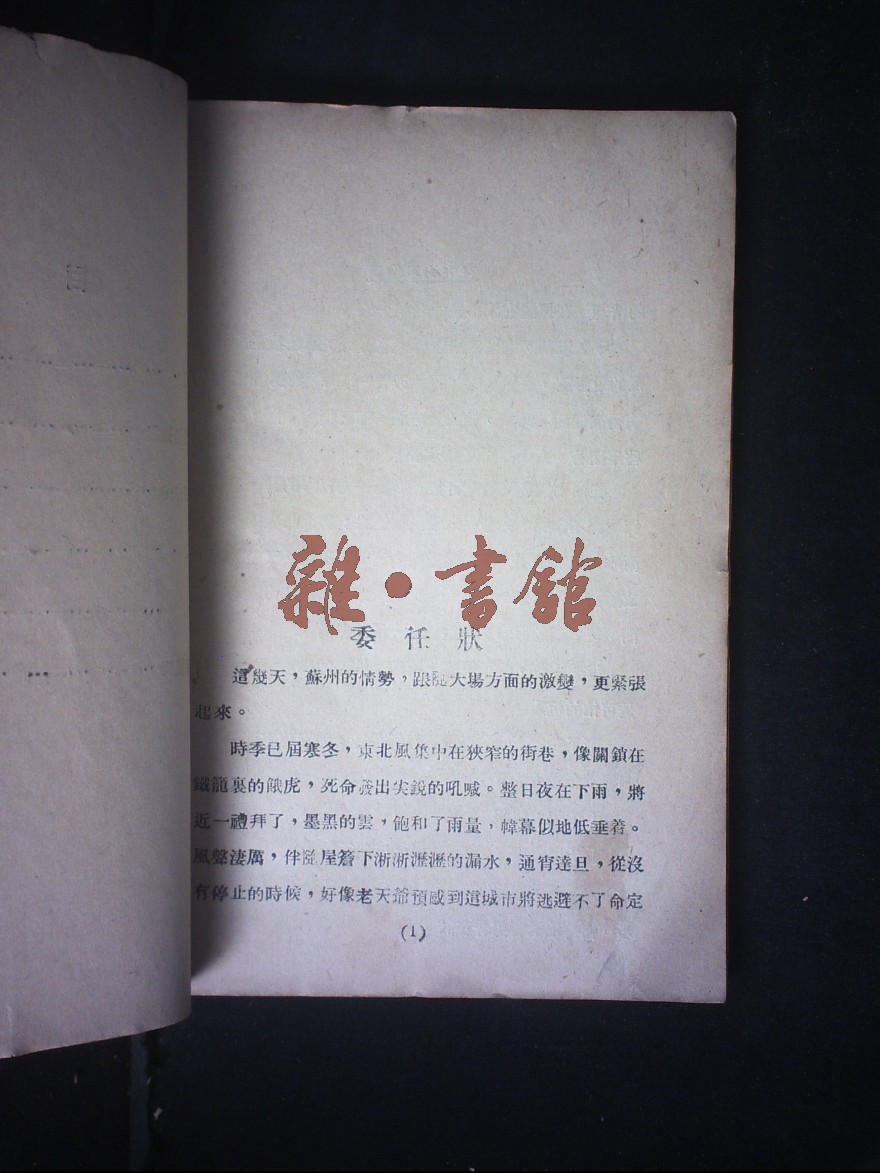 目
雜·書館
委任狀
這幾天，蘇州的情勢，跟隨大場方面的激變，更緊張
起來。
時季已屆寒冬，東北風集中在狹窄的街巷，像關鎖在
鐵籠裏的餓虎，死命發出尖銳的吼喊。整日夜在下雨，將
近一禮拜了，墨黑的雲，飽和了雨量，幃幕似地低垂着。
風聲淒厲，伴隨屋簷下淅淅瀝瀝的漏水，通宵達旦，從沒
有停止的時候，好像老天爺預感到這城市將逃避不了命定
(1)